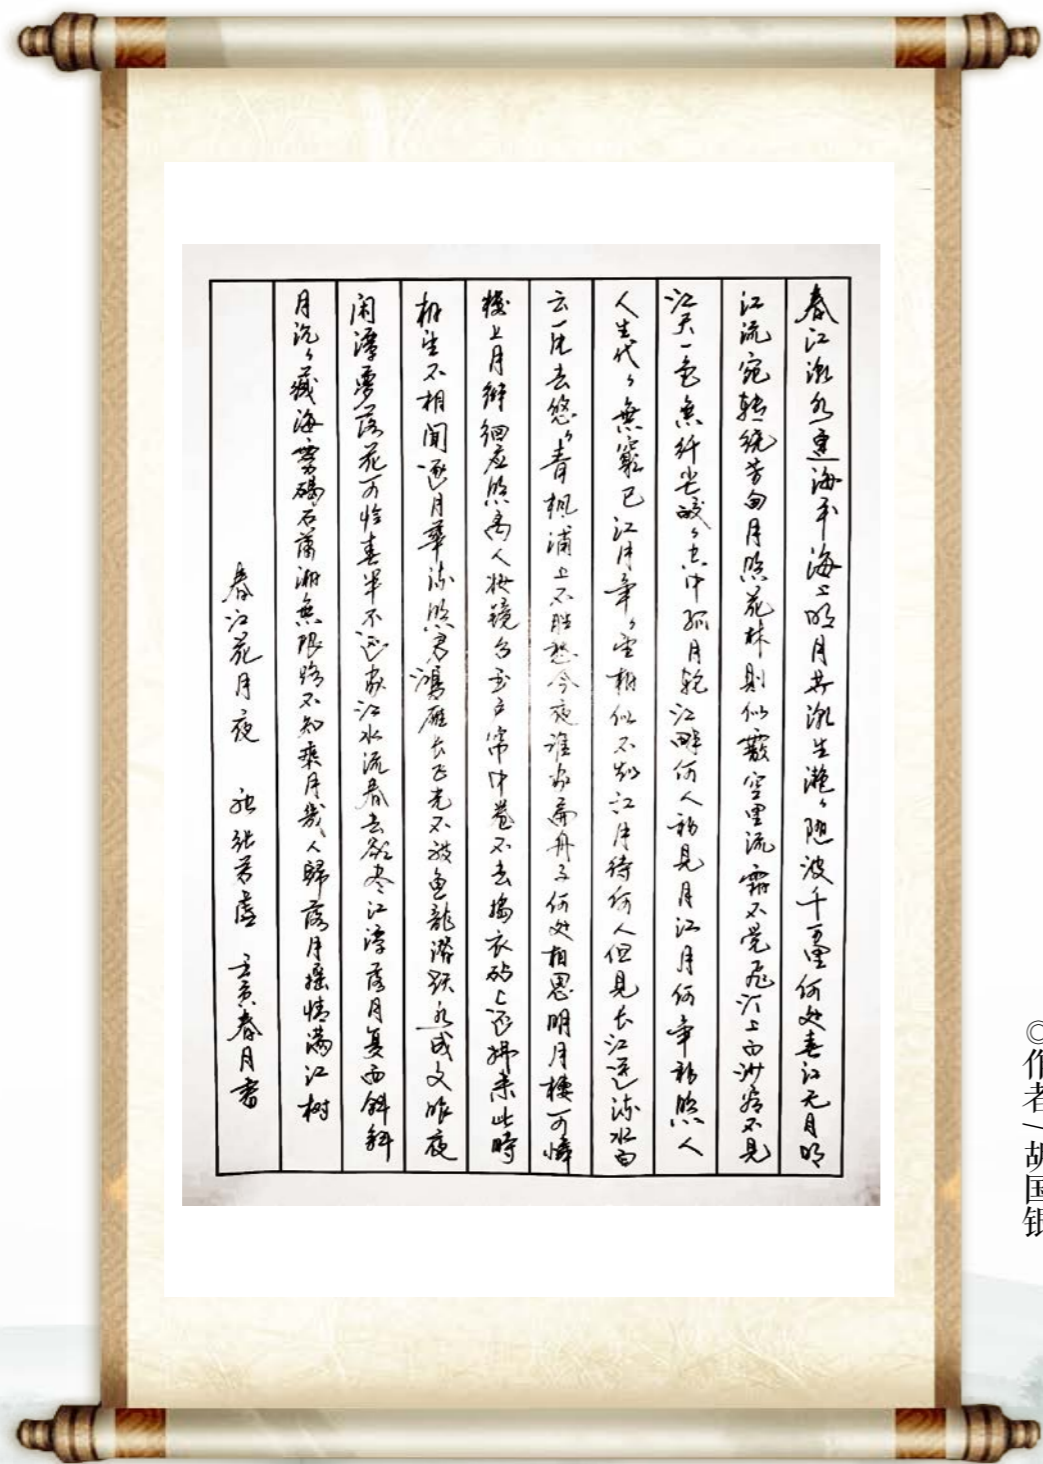 春江潮水連海平海上明月共潮生灧々随波千万里何处春江无月明
江流宛转绕芳甸月照花林则似霰空里流霜不觉飞汀上白沙看不见
江天一色無纤尘皎々空中孤月轮江畔何人初见月江月何年初照人
人生代々無窮已江月年々望相似不知江月待何人但見长江送流水白
云一片去悠々青枫浦上不胜愁今夜谁家扁舟子何处相思明月楼可憐
楼上月徘徊应照离人妆镜台玉户帘中卷不去捣衣砧上还拂来此時
相望不相闻逐月華流照君鴻雁长飞光不渡鱼龍潜跃水成文昨夜
闲潭夢落花可怜春半不还家江水流春去欲尽江潭落月复西斜斜
月沉々藏海雾碣石萧湘無限路不知乘月幾人歸落月摇情满江树
春江花月夜 张若虚 壬寅春月書
◎作者/胡国银